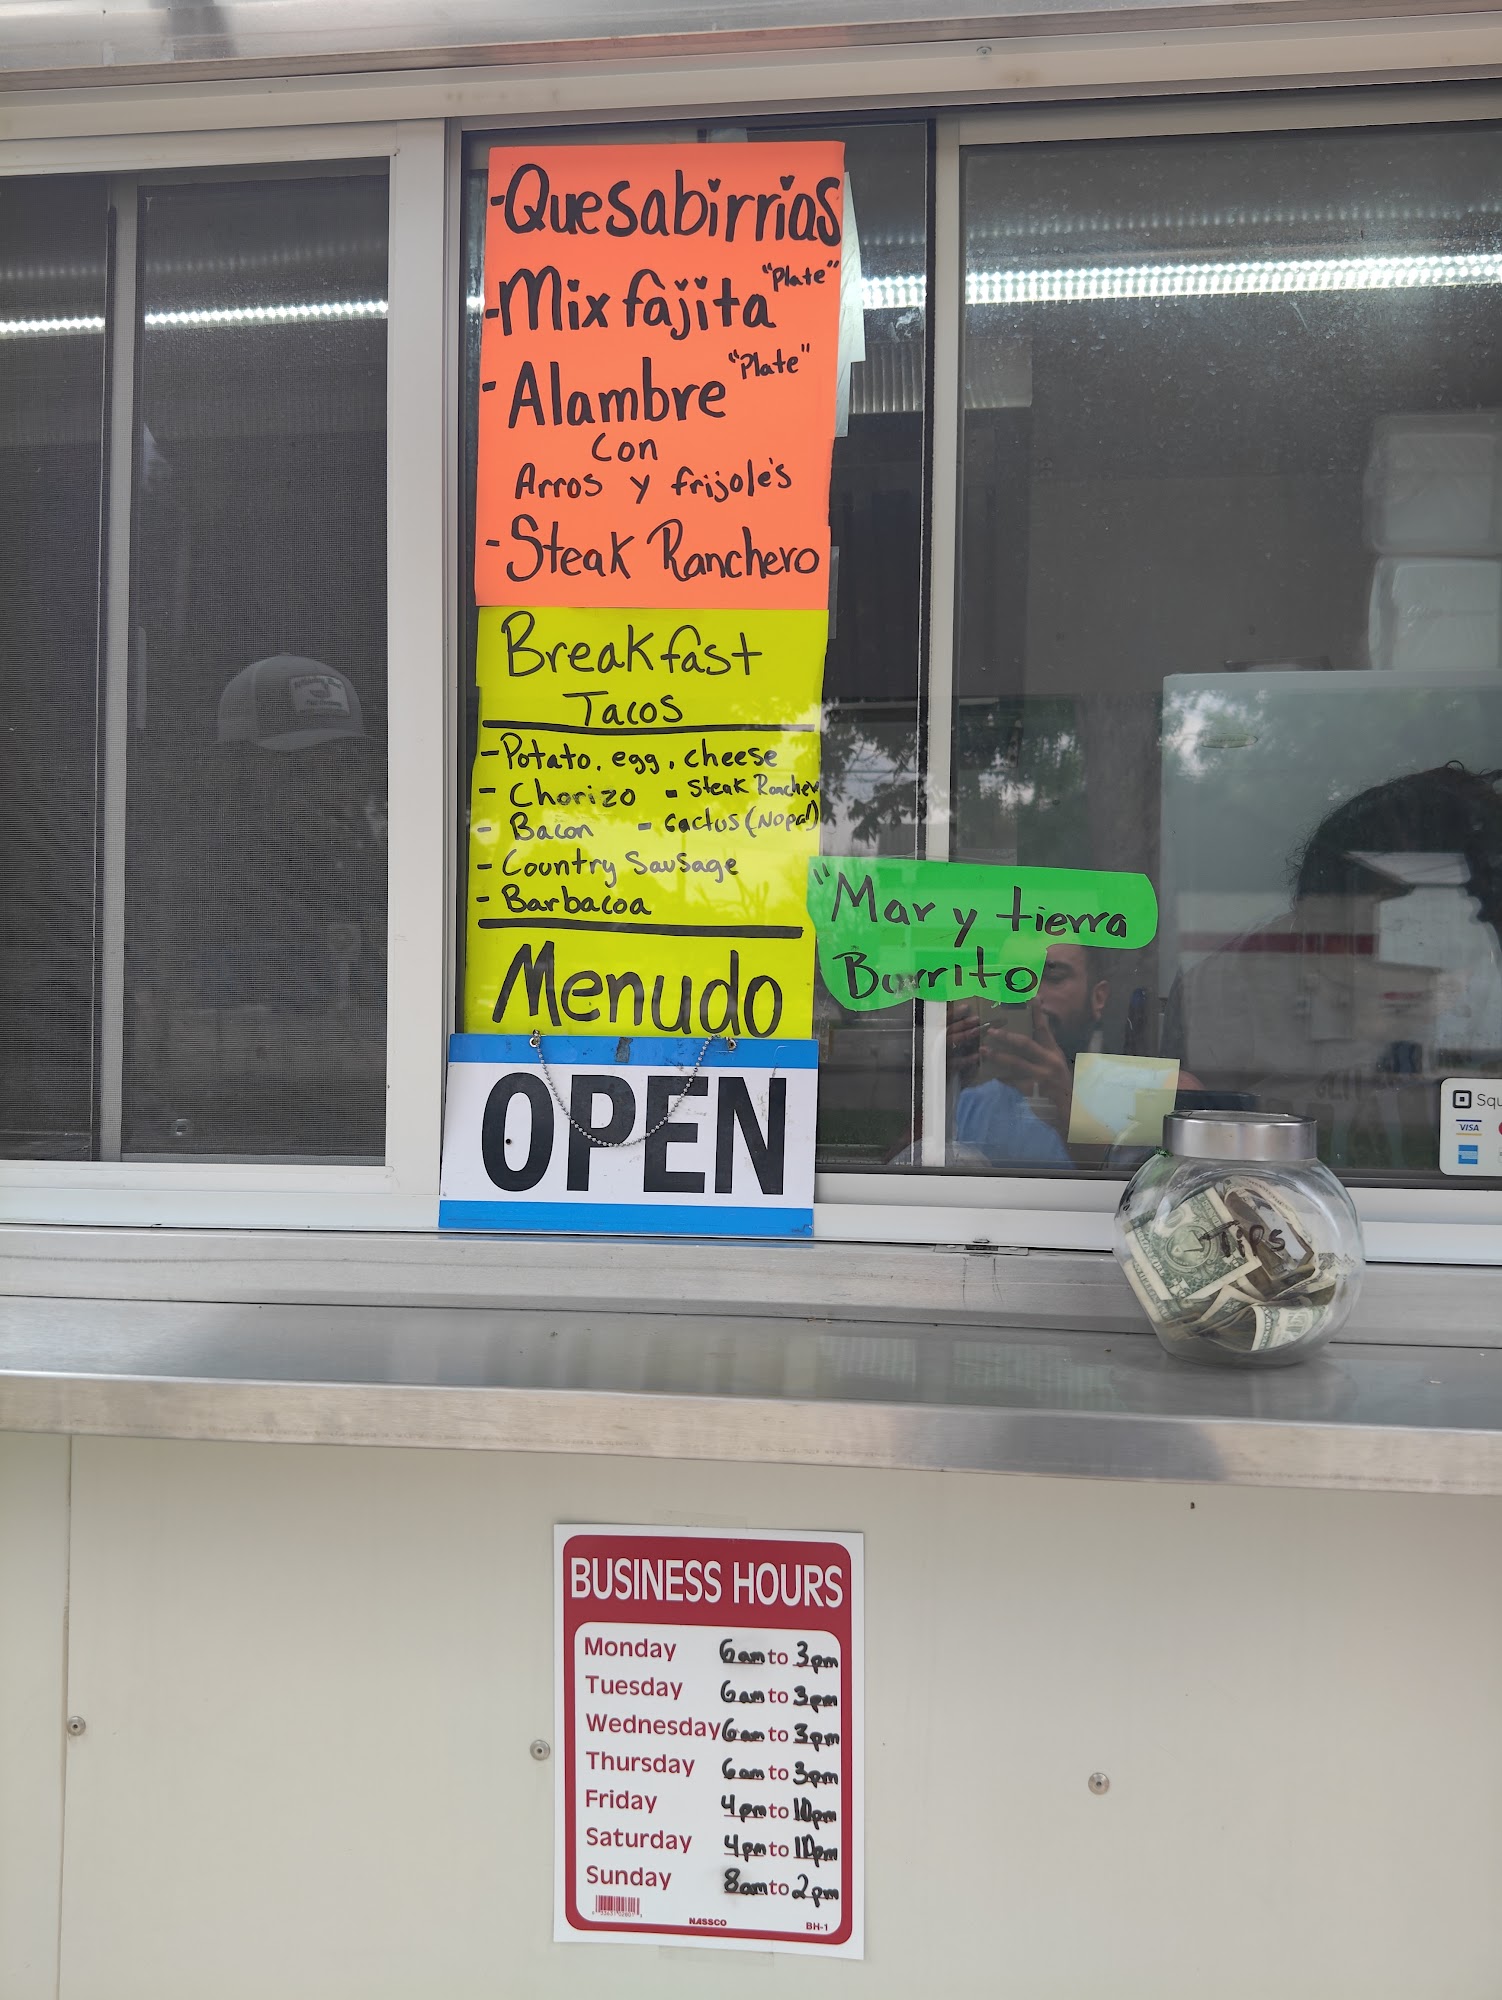 -Quesabirrias
-Mix fajita "Plate"
-Alambre "Plate"
con
Arros y frijole's
-Steak Ranchero
Breakfast
Tacos
-Potato, egg, cheese
- Chorizo - Steak Ranchero
- Bacon - Cactus (Nopal)
- Country Sausage
- Barbacoa
Menudo
"Mar y tierra
Burrito
OPEN
Squ
VISA
TIPS
BUSINESS HOURS
Monday 6am to 3pm
Tuesday 6am to 3pm
Wednesday 6am to 3pm
Thursday 6am to 3pm
Friday 4pm to 10pm
Saturday 4pm to 10pm
Sunday 8am to 2pm
NASSCO BH-1